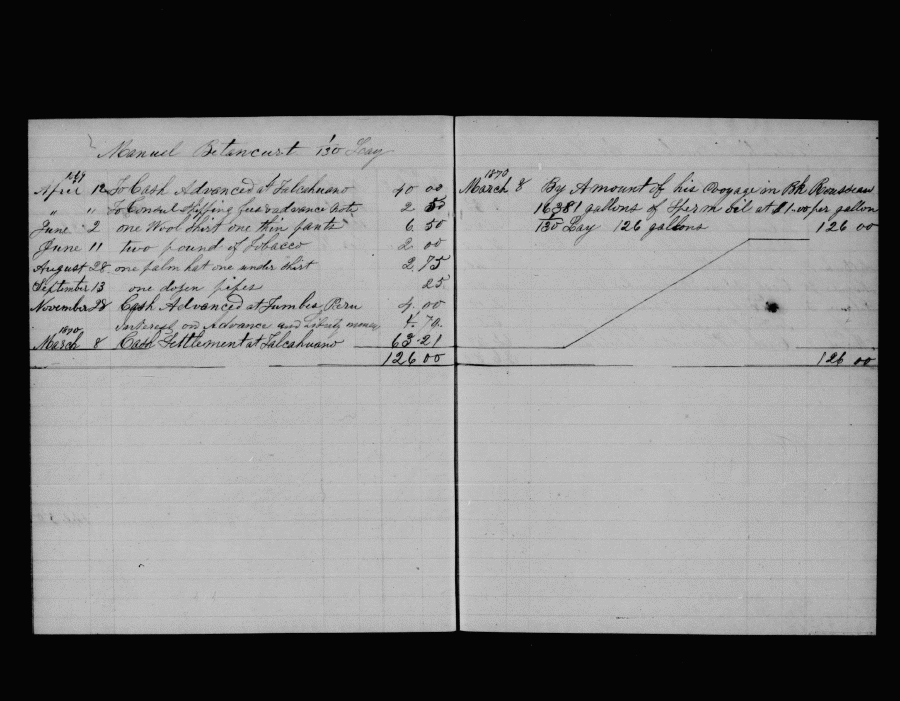 Manuel Betancurt 1/130 Lay
1869
April 12 To Cash Advanced at Talcahuano 40 00
" " To Consul shipping fees & advance note 2 55
June 2 one Wool Shirt one thin pants 6 50
June 11 two pound of Tobacco 2 00
August 28 one palm hat one under shirt 2 75
September 13 one dosen pipes 25
November 28 Cash Advanced at Tumbes Peru 4 00
Interest on Advance and Liberty money 4 79
1870
March 8 Cash Settlement at Talcahuano 63 21
126 00
1870
March 8 By Amount of his Voyage in Bk Rousseau
16381 gallons of Sperm oil at $1.00 per gallon
130 Lay 126 gallons 126 00
126 00